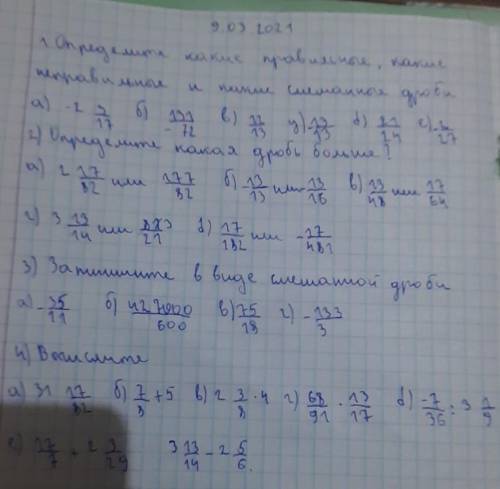 9.03 2021
1. Определите какие правильные, какие
неправильные и какие смешанные дроби
а) -2 3/17 б) 131/-72 в) 12/13 д) 21/24
2) Определите какая дробь больше?
а) 2 17/82 или 177/82 б) -13/13 или -13/16 в) 13/48 или 17/64
г) 3 13/14 или 21 д) 17/182 или -17/481
3) Запишите в виде смешанной дроби
а) -35/11 б) 427000/600 в) 75/18 г) -133/3
4) Вычислите
а) 31 17/82 б) 7/8 + 5 в) 2 3/8 · 4 г) 68/91 · 13/17 д) -7/36 : 3 1/9
е) 17/7 + 2 3/29 3 13/14 - 2 5/6.